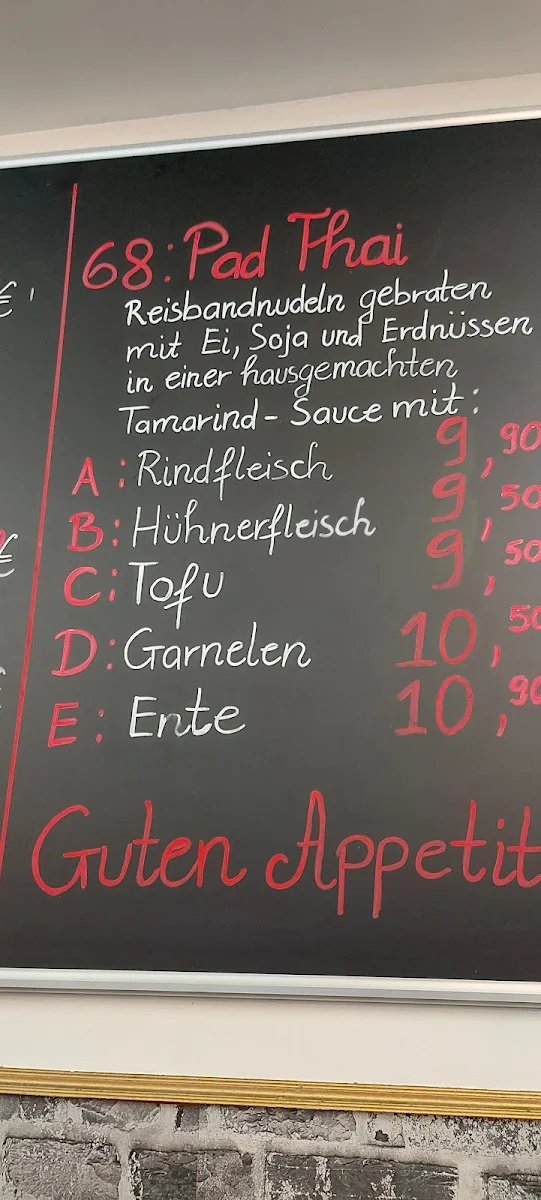 68: Pad Thai
Reisbandnudeln gebraten
mit Ei, Soja und Erdnüssen
in einer hausgemachten
Tamarind - Sauce mit:
A: Rindfleisch 9,90
B: Hühnerfleisch 9,50
C: Tofu 9,50
D: Garnelen 10,50
E: Ente 10,90
Guten Appetit
€
€